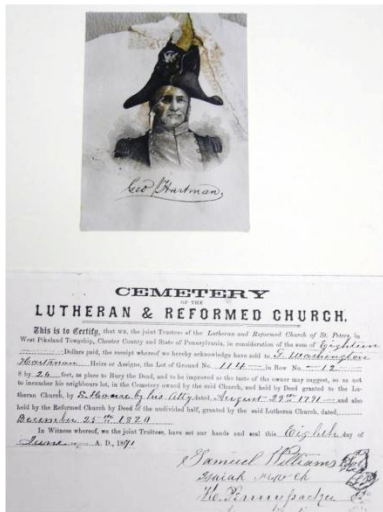 Geo Hartman
CEMETERY
OF THE
LUTHERAN & REFORMED CHURCH.
This is to Certify, that we, the joint Trustees of the Lutheran and Reformed Church of St. Peters, in
West Pikeland Township, Chester County and State of Pennsylvania, in consideration of the sum of Eighteen
Dollars paid, the receipt whereof we hereby acknowledge have sold to J. Washington
Hartman Heirs or Assigns, the Lot of Ground No. 114 in Row No 12
8 by 26 feet, as place to Bury the Dead, and to be improved as the taste of the owner may suggest, so as not
to incumber his neighbours lot, in the Cemetery owned by the said Church, and held by Deed granted to the Lu-
theran Church, by by his Atty dated, August 22nd 1771 and also
held by the Reformed Church by Deed of the undivided half, granted by the said Lutheran Church, dated,
December 25th 1829
In Witness whereof, we the joint Trustees, have set our hands and seal this, Eighth day of
June A. D., 1891
Samuel Williams
Isaiah
Pennypacker